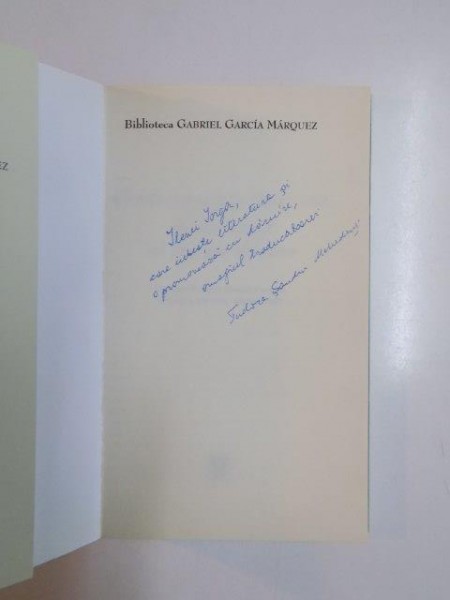 Biblioteca GABRIEL GARCÍA MÁRQUEZ
EZ
Ilenei Iorga,
care iubeste literatura și
o promovează cu dăruire,
omagiul traducătoarei
Tudora Șandru Mehedinți